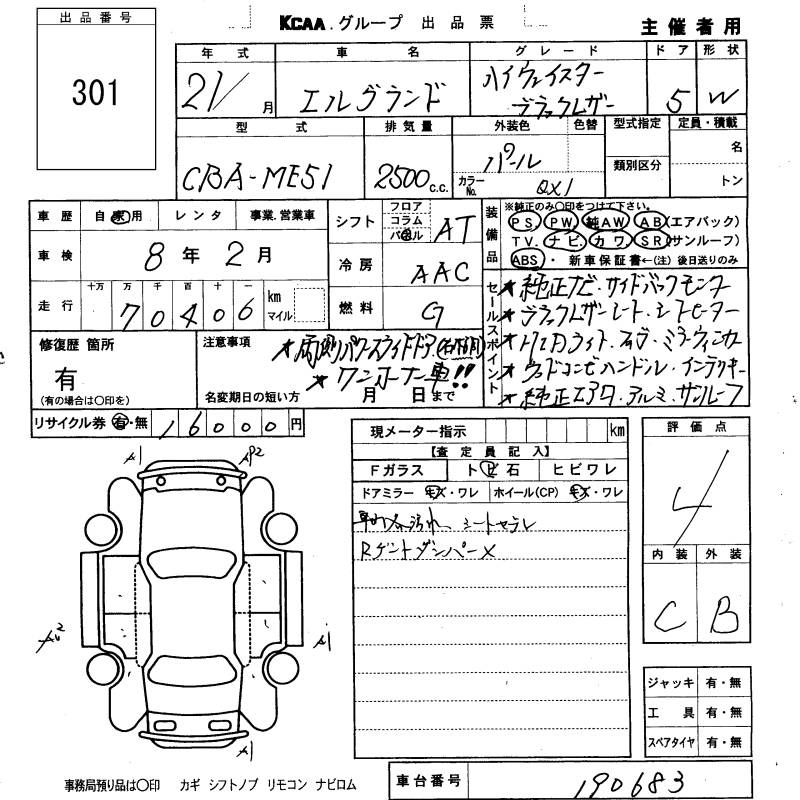 KCAA.グループ 出品票
主催者用
出品番号
301
年式 車名 グレード ドア 形状
21/ 月 エルグランド ハイウェイスター ブラックレザー 5 W
型式 排気量 外装色 色替 型式指定 定員・積載
CBA-ME51 2500 c.c. パール 類別区分 名
カラーNo. QX1 トン
車歴 自家用 レンタ 事業.営業車
車検 8年2月
走行 十万 万 千 百 十 一
70406 km マイル
シフト フロア コラム パネル AT
冷房 AAC
燃料 G
装備品 ※純正のみ○印をつけて下さい。
PS PW 純AW AB (エアバック)
TV. ナビ. カワ. SR (サンルーフ)
ABS ・ 新車保証書←(注)後日送りのみ
セールスポイント
★純正ナビ・サイドバックモニター
★ブラックレザーシート・シートヒーター
★ウッドコンビハンドル・インテリキー
★純正エアロ・アルミ・サンルーフ
修復歴 箇所
有
(有の場合は○印を)
注意事項
★両側パワースライドドア
★ワンオーナー車!!
名変期日の短い方 月 日まで
リサイクル券 有・無 16000円
現メーター指示 km
【査定員記入】
Fガラス トビ石 ヒビワレ
ドアミラー キズ・ワレ ホイール(CP) キズ・ワレ
Rゲートダンパー×
評価点
4
内装 外装
C B
A1 A1 A1
ジャッキ 有・無
工具 有・無
スペアタイヤ 有・無
事務局預り品は○印 カギ シフトノブ リモコン ナビロム
車台番号 190683